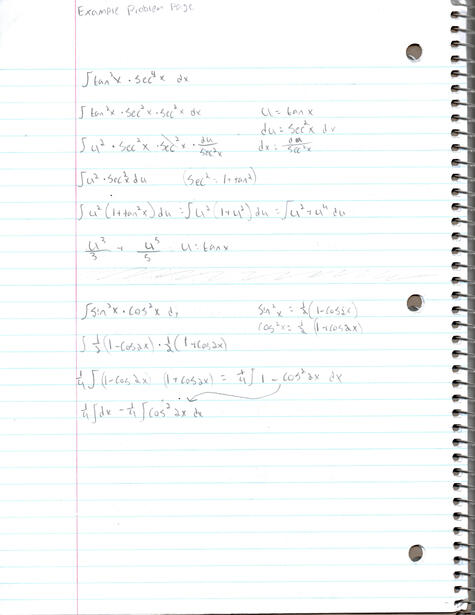 Example Problem Page
∫tan²x · sec⁴x dx
∫tan²x · sec²x · sec²x dx u = tanx
du = sec²x dx
∫u² · sec²x · sec²x · du/sec²x dx = du/sec²x
∫u² · sec²x du (sec² = 1+tan²)
∫u²(1+tan²x)du = ∫u²(1+u²)du = ∫u²+u⁴ du
u³/3 + u⁵/5 u=tanx
∫sin²x · cos²x dx sin²x = ½(1-cos2x)
cos²x = ½(1+cos2x)
∫½(1-cos2x) · ½(1+cos2x)
¼∫(1-cos2x) (1+cos2x) = ¼∫1-cos²2x dx
¼∫dx - ¼∫cos²2x dx